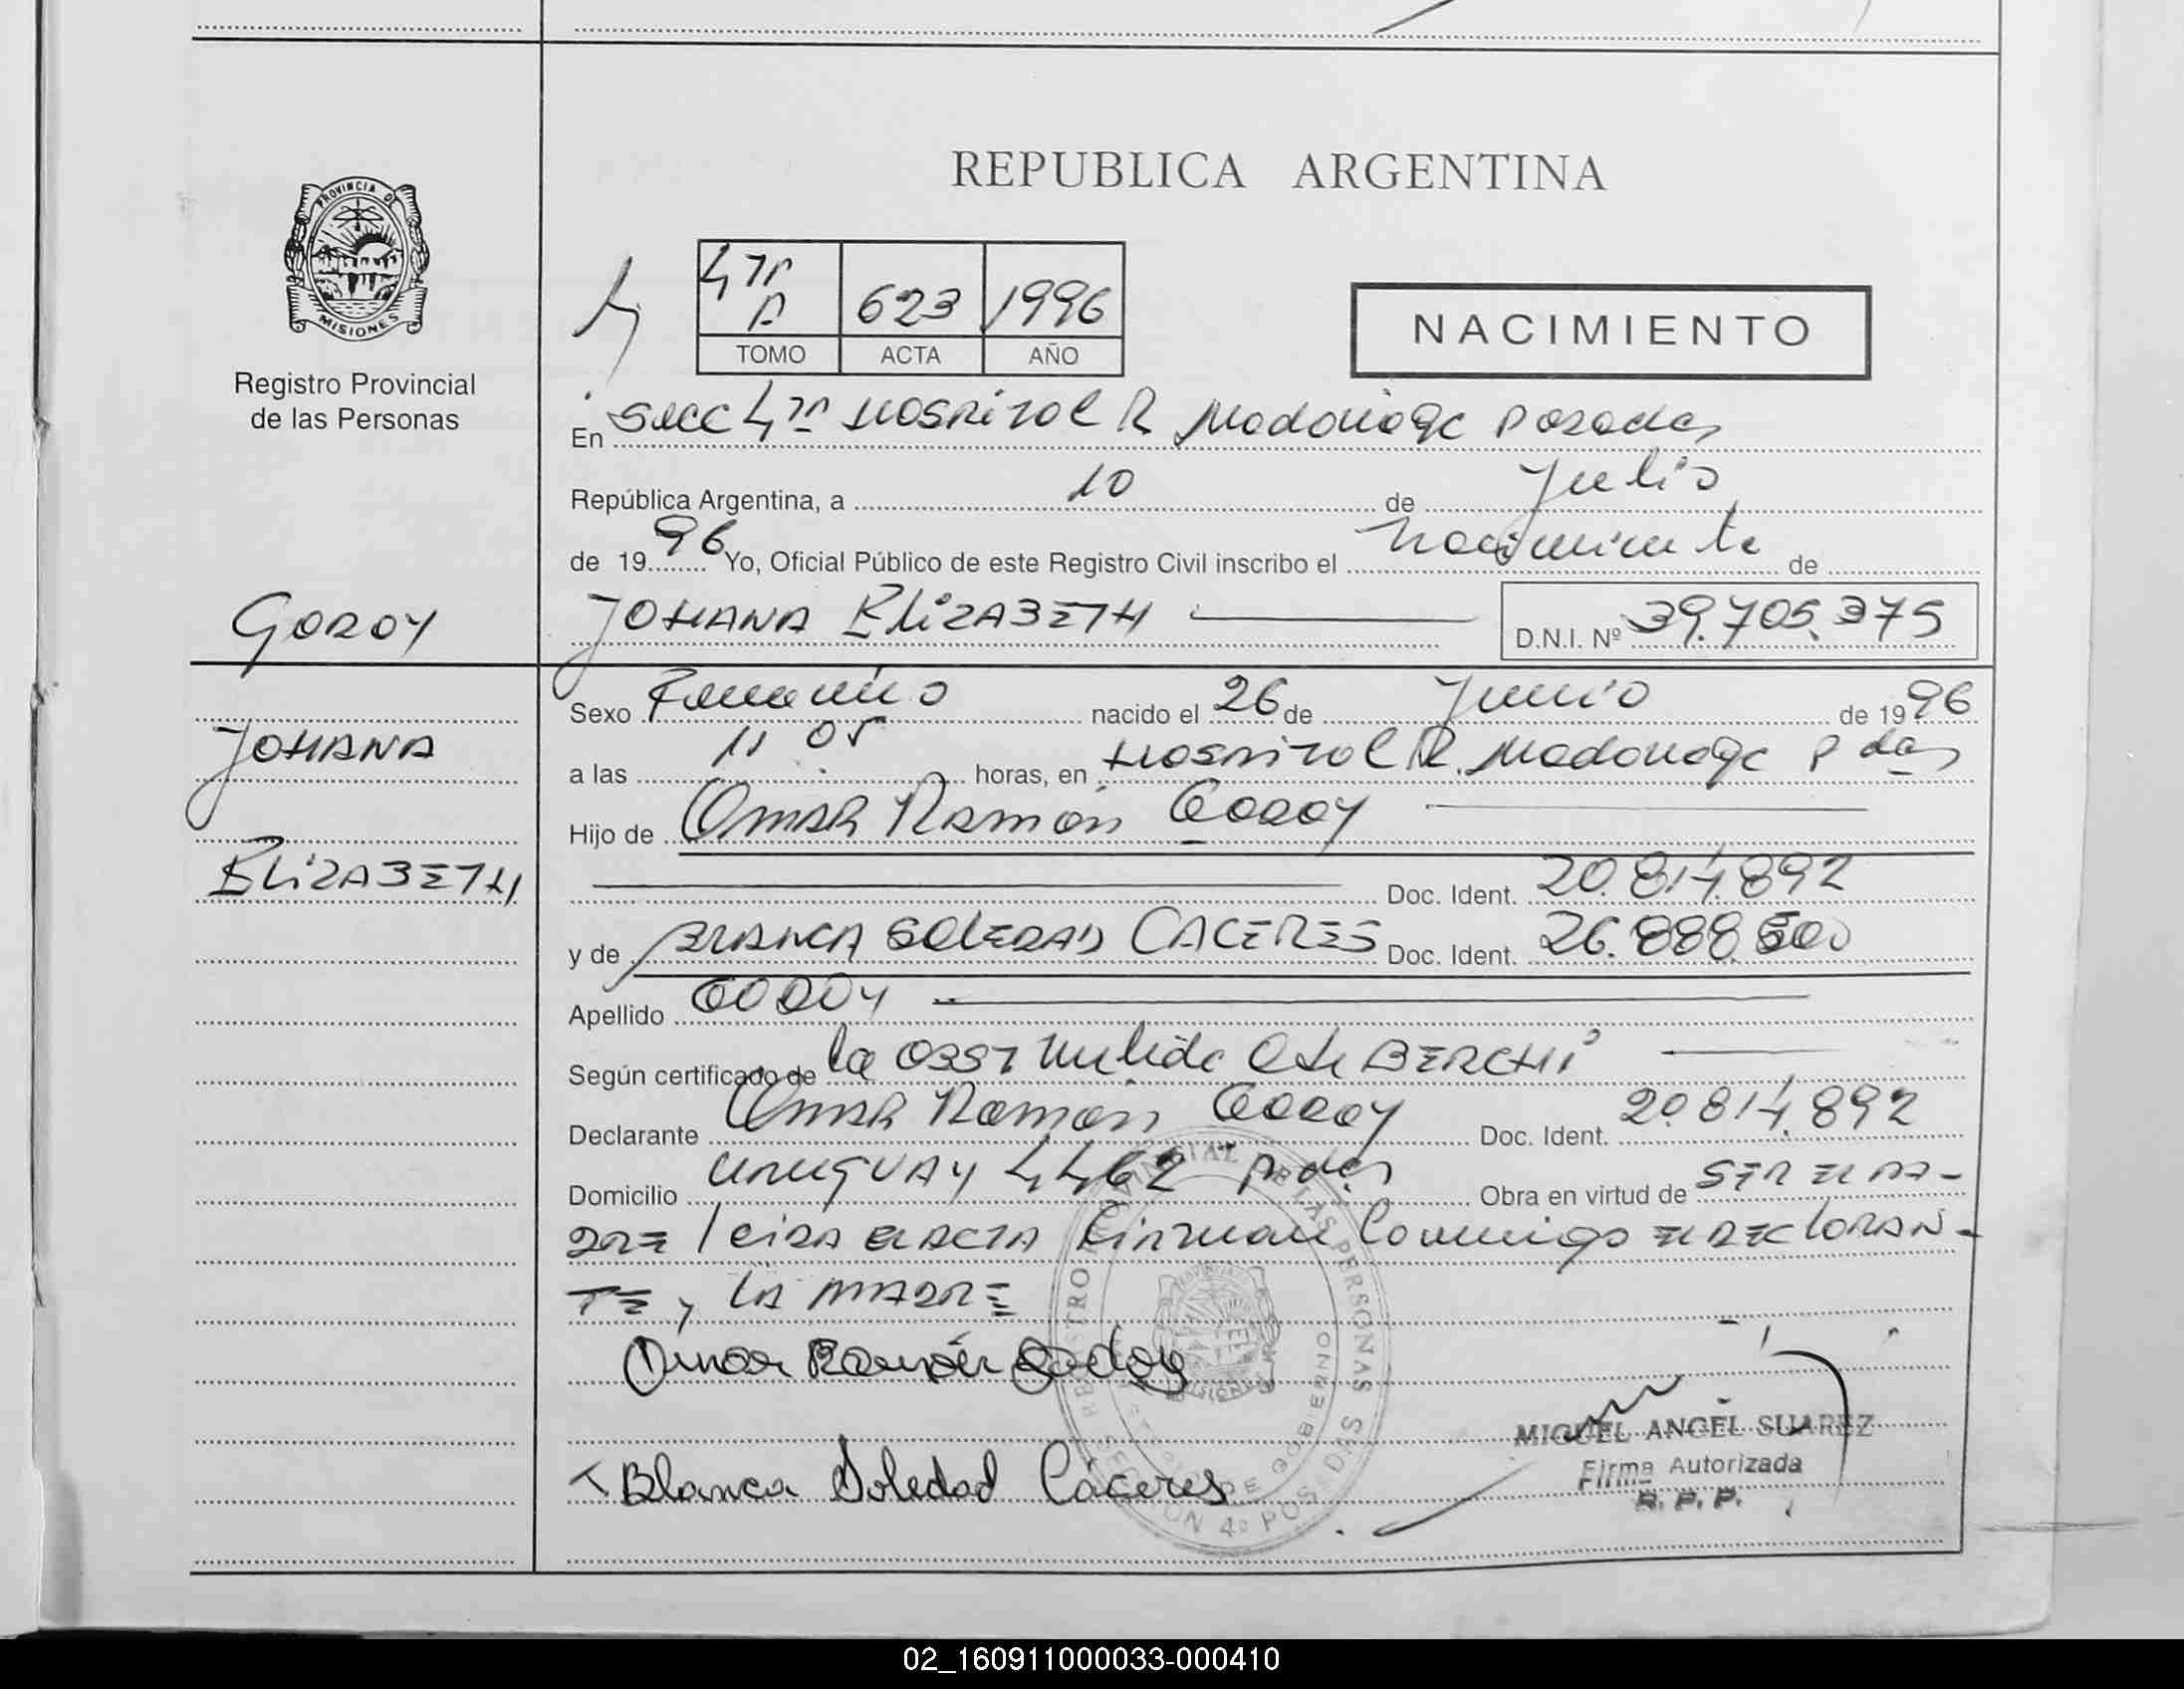 REPUBLICA ARGENTINA
PROVINCIA DE
MISIONES
Registro Provincial
de las Personas
4ta A 623 1996
TOMO ACTA AÑO
NACIMIENTO
En Secc 4ta Hospital R Madariaga Posadas
República Argentina, a 10 de Julio
de 1996 Yo, Oficial Público de este Registro Civil inscribo el Nacimiento de
GODOY
JOHANA ELIZABETH D.N.I. Nº 39.705.375
JOHANA
ELIZABETH
Sexo Femenino nacido el 26 de Junio de 1996
a las 11 05 horas, en Hospital R. Madariaga Pdas
Hijo de Omar Ramón Godoy
Doc. Ident. 20.814.892
y de BLANCA SOLEDAD CACERES Doc. Ident. 26.888.500
Apellido GODOY
Según certificado de la Obst
Declarante Omar Ramón Godoy Doc. Ident. 20.814.892
Domicilio URUGUAY 4462 Pdas Obra en virtud de SER EL PA-
DRE LEIDA EL ACTA Firman Conmigo EL DECLARAN-
TE y LA MADRE
Omar Ramón Godoy
MIGUEL ANGEL SUAREZ
Firma Autorizada
R. P. P.
Blanca Soledad Cáceres
REGISTRO PROVINCIAL DE LAS PERSONAS
SECCION 4º POSADAS
02_160911000033-000410